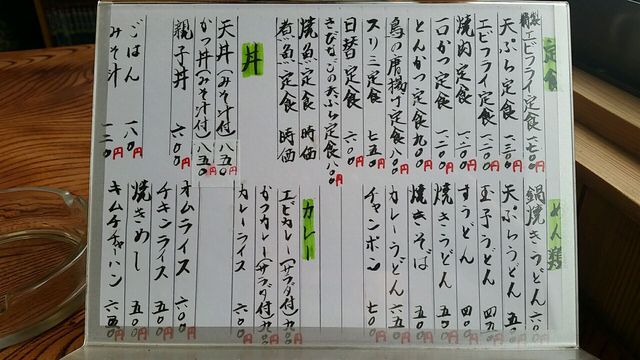 定食
特製エビフライ定食 一七〇〇円
エビフライ定食 一二〇〇円
天ぷら定食 一三〇〇円
焼肉定食 一二〇〇円
一口かつ定食 一二〇〇円
とんかつ定食 九〇〇円
鳥の唐揚げ定食 八〇〇円
スリミ定食 七五〇円
日替定食 六〇〇円
きびなごの天ぷら定食 八〇〇円
焼魚定食 時価
煮魚定食 時価
丼
天丼(みそ汁付) 八五〇円
かつ丼(みそ汁付) 八五〇円
親子丼 六〇〇円
ごはん 一八〇円
みそ汁 一二〇円
めん類
鍋焼きうどん
天ぷらうどん
玉子うどん
すうどん
焼きうどん
焼きそば
カレーうどん 六五〇円
チャンポン 七〇〇円
カレー
エビカレー(サラダ付) 九〇〇円
かつカレー(サラダ付) 九〇〇円
カレーライス
オムライス 六〇〇円
チキンライス 五〇〇円
焼きめし 五〇〇円
キムチチャーハン 六五〇円